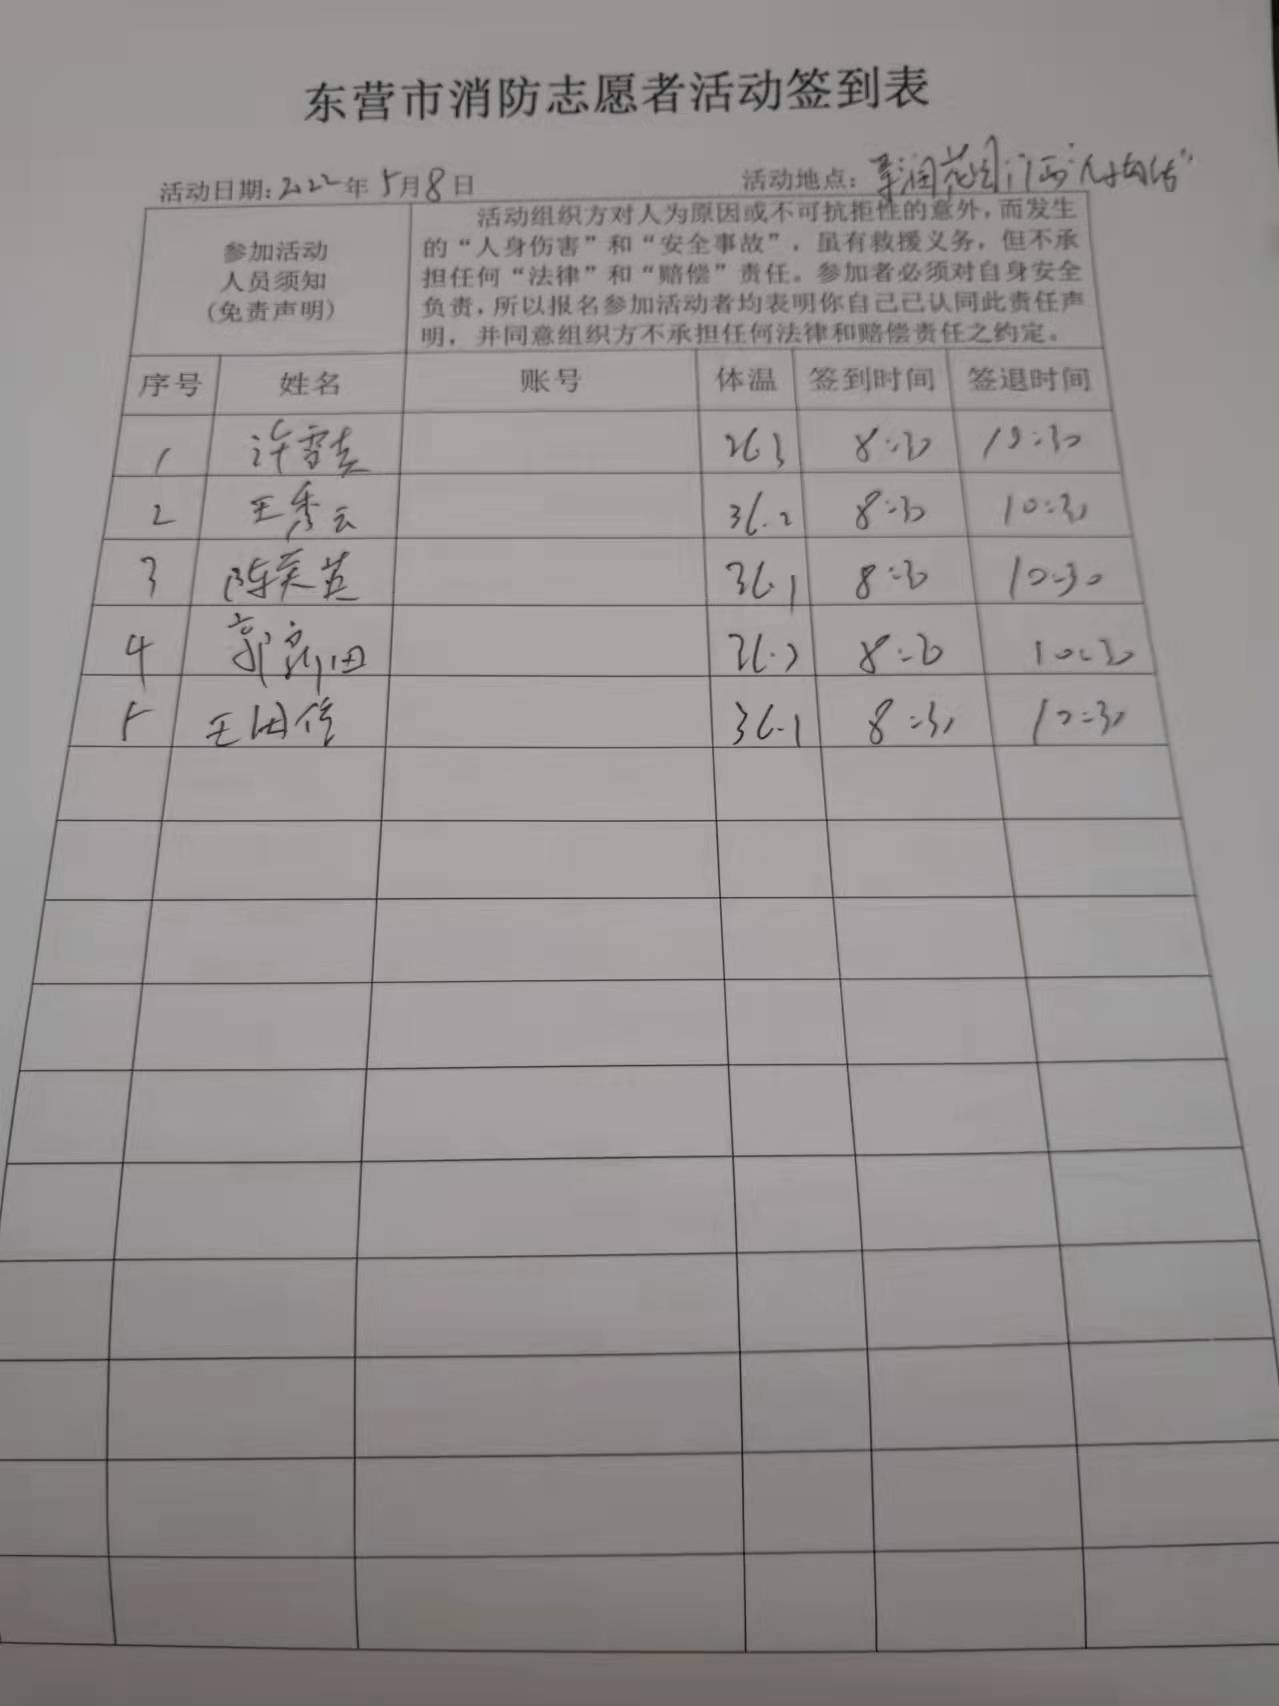 东营市消防志愿者活动签到表
活动日期:2022年5月8日 活动地点:润花园
参加活动
人员须知
(免责声明)
活动组织方对人为原因或不可抗拒性的意外,而发生
的“人身伤害”和“安全事故”,虽有救援义务,但不承
担任何“法律”和“赔偿”责任。参加者必须对自身安全
负责,所以报名参加活动者均表明你自己已认同此责任声
明,并同意组织方不承担任何法律和赔偿责任之约定。
序号 姓名 账号 体温 签到时间 签退时间
1 许雪 36.3 8:30 10:30
2 王秀云 36.2 8:30 10:30
3 陈英 36.1 8:30 10:30
4 郭田 36.2 8:30 10:30
5 王 36.1 8:30 10:30